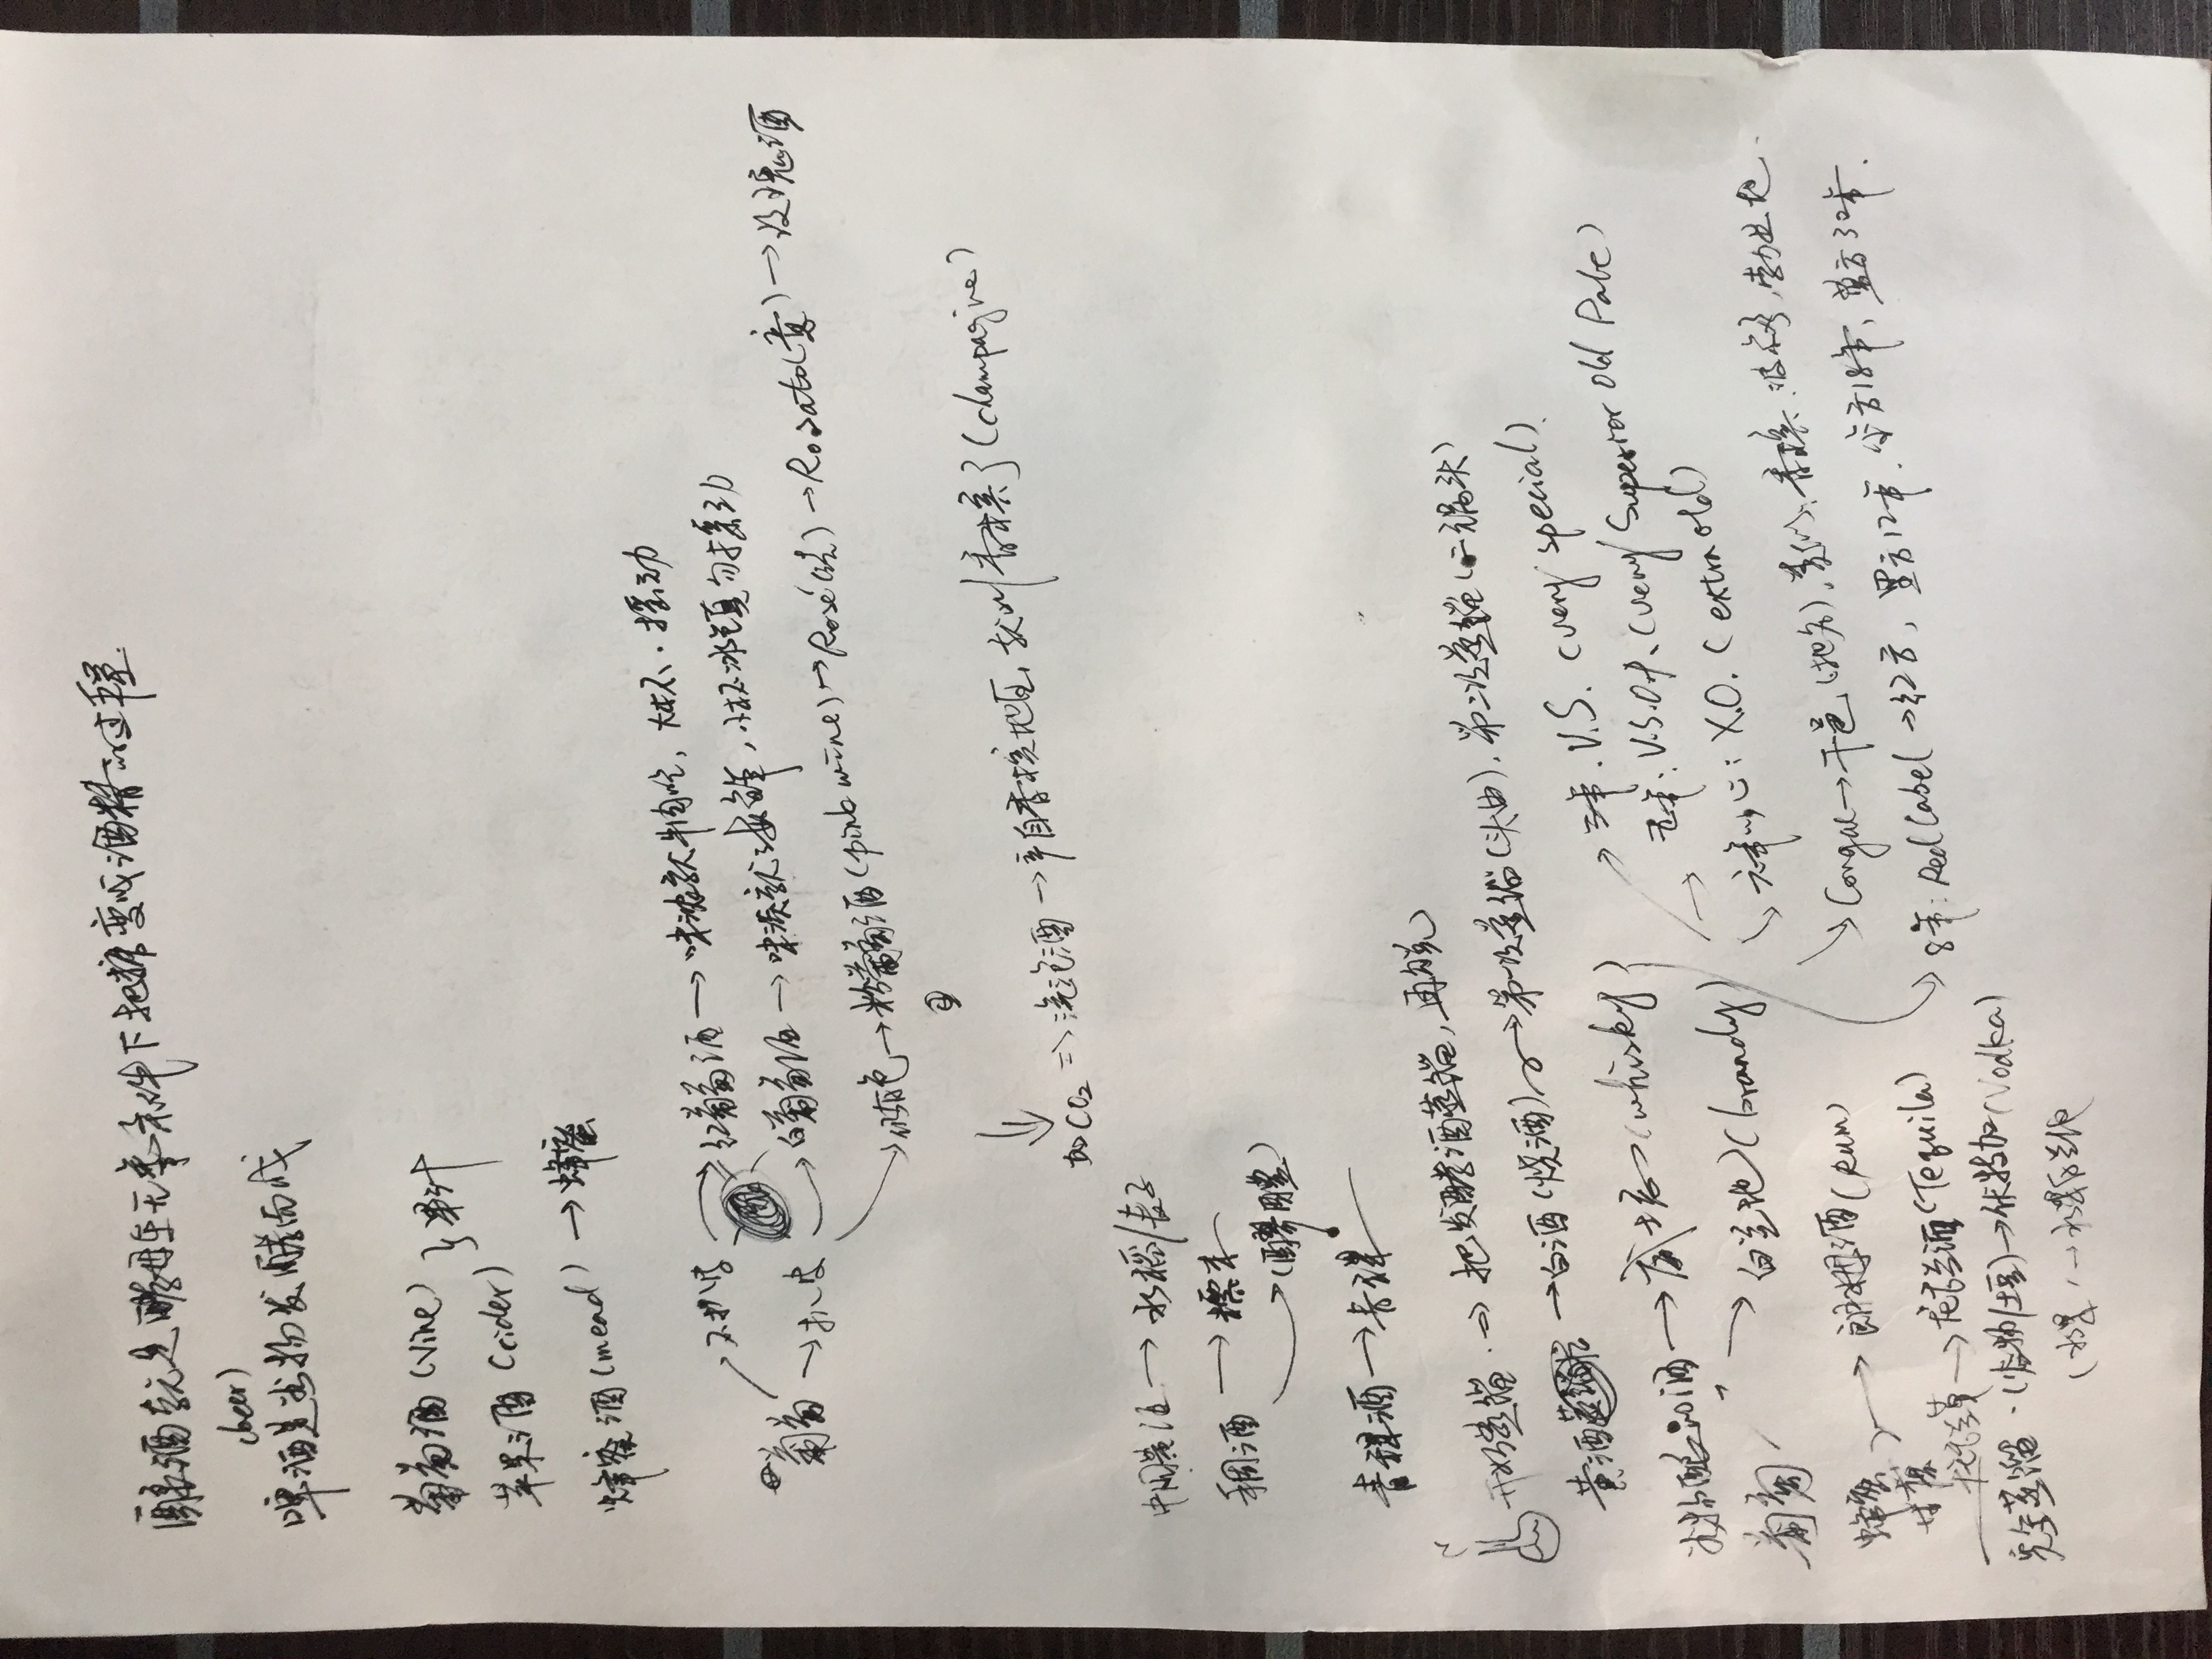 酿酒就是酵母在无氧条件下把糖变成酒精的过程.
(beer)
啤酒是谷物发酵而成
葡萄酒(Wine) } 果汁
苹果酒(Cider)
蜂蜜酒(mead) → 蜂蜜
葡萄 → 不扒皮 → 红葡萄酒 → 味浓就牛肉吃, 大杯、摇动
→ 扒皮 → 白葡萄酒 → 味淡就海鲜, 小杯冰镇勿摇动
→ 脱色 → 粉葡萄酒(pink wine) → Rosé(法) → Rosato(意) → 玫瑰酒
⇓
加CO₂ ⇒ 汽泡酒 → 产自香槟地区, 就叫香槟了(champagne)
中国黄酒 → 水稻/麦子
稠酒 → 糯米
→ (醪醩)
青稞酒 → 青稞
开始蒸馏. ⇒ 把发酵酒蒸馏, 再脱
黄酒蒸馏 → 白酒(烧酒) → 第一次蒸馏(头曲), 第二次蒸馏(二锅头)
啤酒 → 威士忌 (whisky) } → 三年. V.S. (very special).
五年: V.S.O.P. (very superor old Pale)
葡萄 → 白兰地 (brandy) → 六年以上: X.O. (extra old)
→ Congac → 干邑 (地名), 类似: 香槟, 波尔多,
→ 8年: Red Label → 红方, 黑方12年. 金方18年, 蓝方30年.
甘蔗 → 朗姆酒(Rum)
龙舌兰 → 龙舌兰酒(Tequila)
完全蒸馏. (土豆) → 伏特加(Vodka)